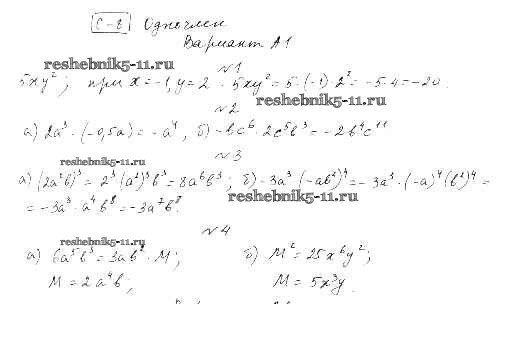 С-8 Одночлен
Вариант А1
reshebnik5-11.ru
№1
5xy²; при x=-1, y=2 · 5xy²=5·(-1)·2²=-5·4=-20.
reshebnik5-11.ru
№2
а) 2a³·(-0,5a)=-a⁴, б) -bc⁶·2c⁵b³=-2b⁴c¹¹
№3
reshebnik5-11.ru
а) (2a²b)³=2³(a²)³b³=8a⁶b³; б) -3a³(-ab²)⁴=-3a³·(-a)⁴(b²)⁴=
reshebnik5-11.ru
=-3a³·a⁴b⁸=-3a⁷b⁸.
№4
reshebnik5-11.ru
а) 6a⁵b³=3ab²·M; б) M²=25x⁶y²;
M=2a⁴b; M=5x³y.